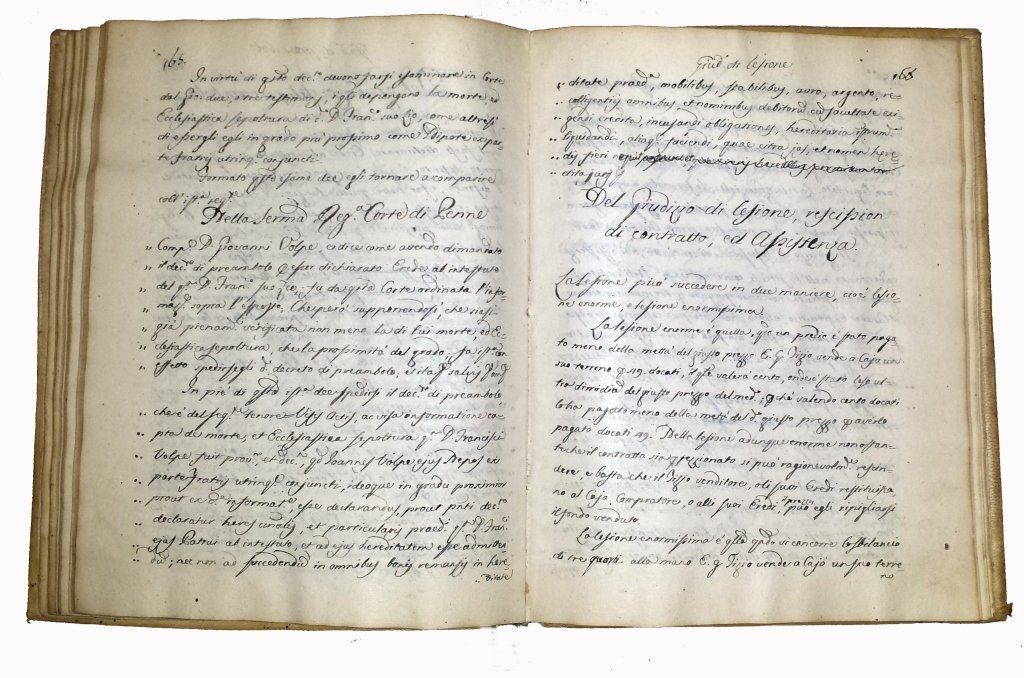 165.
In virtù di q̃sto dec.º devono farsi esaminare in Corte
dal Giudice, o tre testimonj, i q̃li depongono la morte, ed
Ecclesiastica sepoltura di d.º D. Fran.º suo Zio, come altresì
di essergli egli in grado più prossimo come Nipote ex par-
te fratris utrinq; conjuncti.
Formato q̃sto esame dee egli tornare a comparire
coll' ist.ª seg.ᵉ
Nella Serma Reg.ª Corte di Penne
„ Comp.ᵉ D. Giovanni Volpe, e dice come avendo dimandato
„ il dec.º di preambolo p esser dichiarato Erede ab intestato
„ del q.m D. Fran.º suo Zio, fu da q̃sta Corte ordinata l'infor-
„ sopra l'espresso; Che però supponendosi, che resti
„ già pienam.ᵉ verificata non meno la di lui morte, ed Ec-
„ clesiastica sepoltura, che la prossimità del grado; fa ist.ª con
„ effetto spedirsegli d.º decreto di preambolo, et ita salvis
In piè di q̃sta ist.ª dee spedirsi il dec.º di preambolo
„ che è del seg.ᵉ tenore Visis Actis, ac visa informatione ca-
„ pta de morte, et Ecclesiastica sepoltura q.m D. Francisci
„ Volpe, fuit prov.m, et dec.m, qd Joannes Volpe ejus Nepos ex
„ parte Fratris utrinq; conjuncti, ideoque in gradu proximior
„ prout ex d.ª informat.ᵉ, esse declarandus, prout pnti dec.º
„ declaratur heres univlis, et particularis praed.i q.m D. Fran.i
„ ejus Patrui ab intestato, et ad ejus hereditatem esse admitten-
„ du; nec non ad succedendũ in omnibus bonis remansis in here-
ditate
Giud.º di Lesione
166
„ ditate praed.ª, mobilibus, stabilibus, auro, argento, re-
„ colligentiis omnibus, et nominibus debitorũ cũ facultate exi-
„ gendi credita, incusandi obligationes, hereditaria ipsum
„ liquidandi, aliaq; faciendi, quae citra jus, et nomen here-
„ dis fieri
„ dita juris
Del Giudizio di lesione, rescission
di contratto, ed Assistenza.
La Lesione può succedere in due maniere, cioè lesio-
ne enorme, e lesione enormissima
La lesione enorme è quella, q̃do un predio è stato paga-
to meno della mettà del giusto prezzo E. G. Tizio vende a Cajo un
suo terreno p 49. docati, il q̃le valerà cento, onde è stato leso ul-
tra dimidiã del giusto prezzo del med.º, p chè valendo cento docati
lo ha pagato meno della metà del d.º giusto prezzo p averlo
pagato docati 49. Della lesione adunque enorme non ostan-
te che il contratto sia pfezionato si può ragionevolm.ᵉ rescin-
dere, e basta che il Tizio venditore, o li suoi Eredi restituisca-
no al Cajo Compratore, o alli suoi Eredi, il prezzo, può egli ripigliarsi
il fondo venduto.
La lesione enormissima è q̃lla q̃ndo vi concorre lo sbilancio
di tre quarti alla mano E. g. Tizio vende a Cajo un suo terre-
no